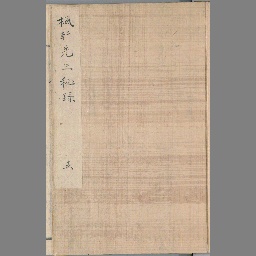 楓軒先生秘録
五